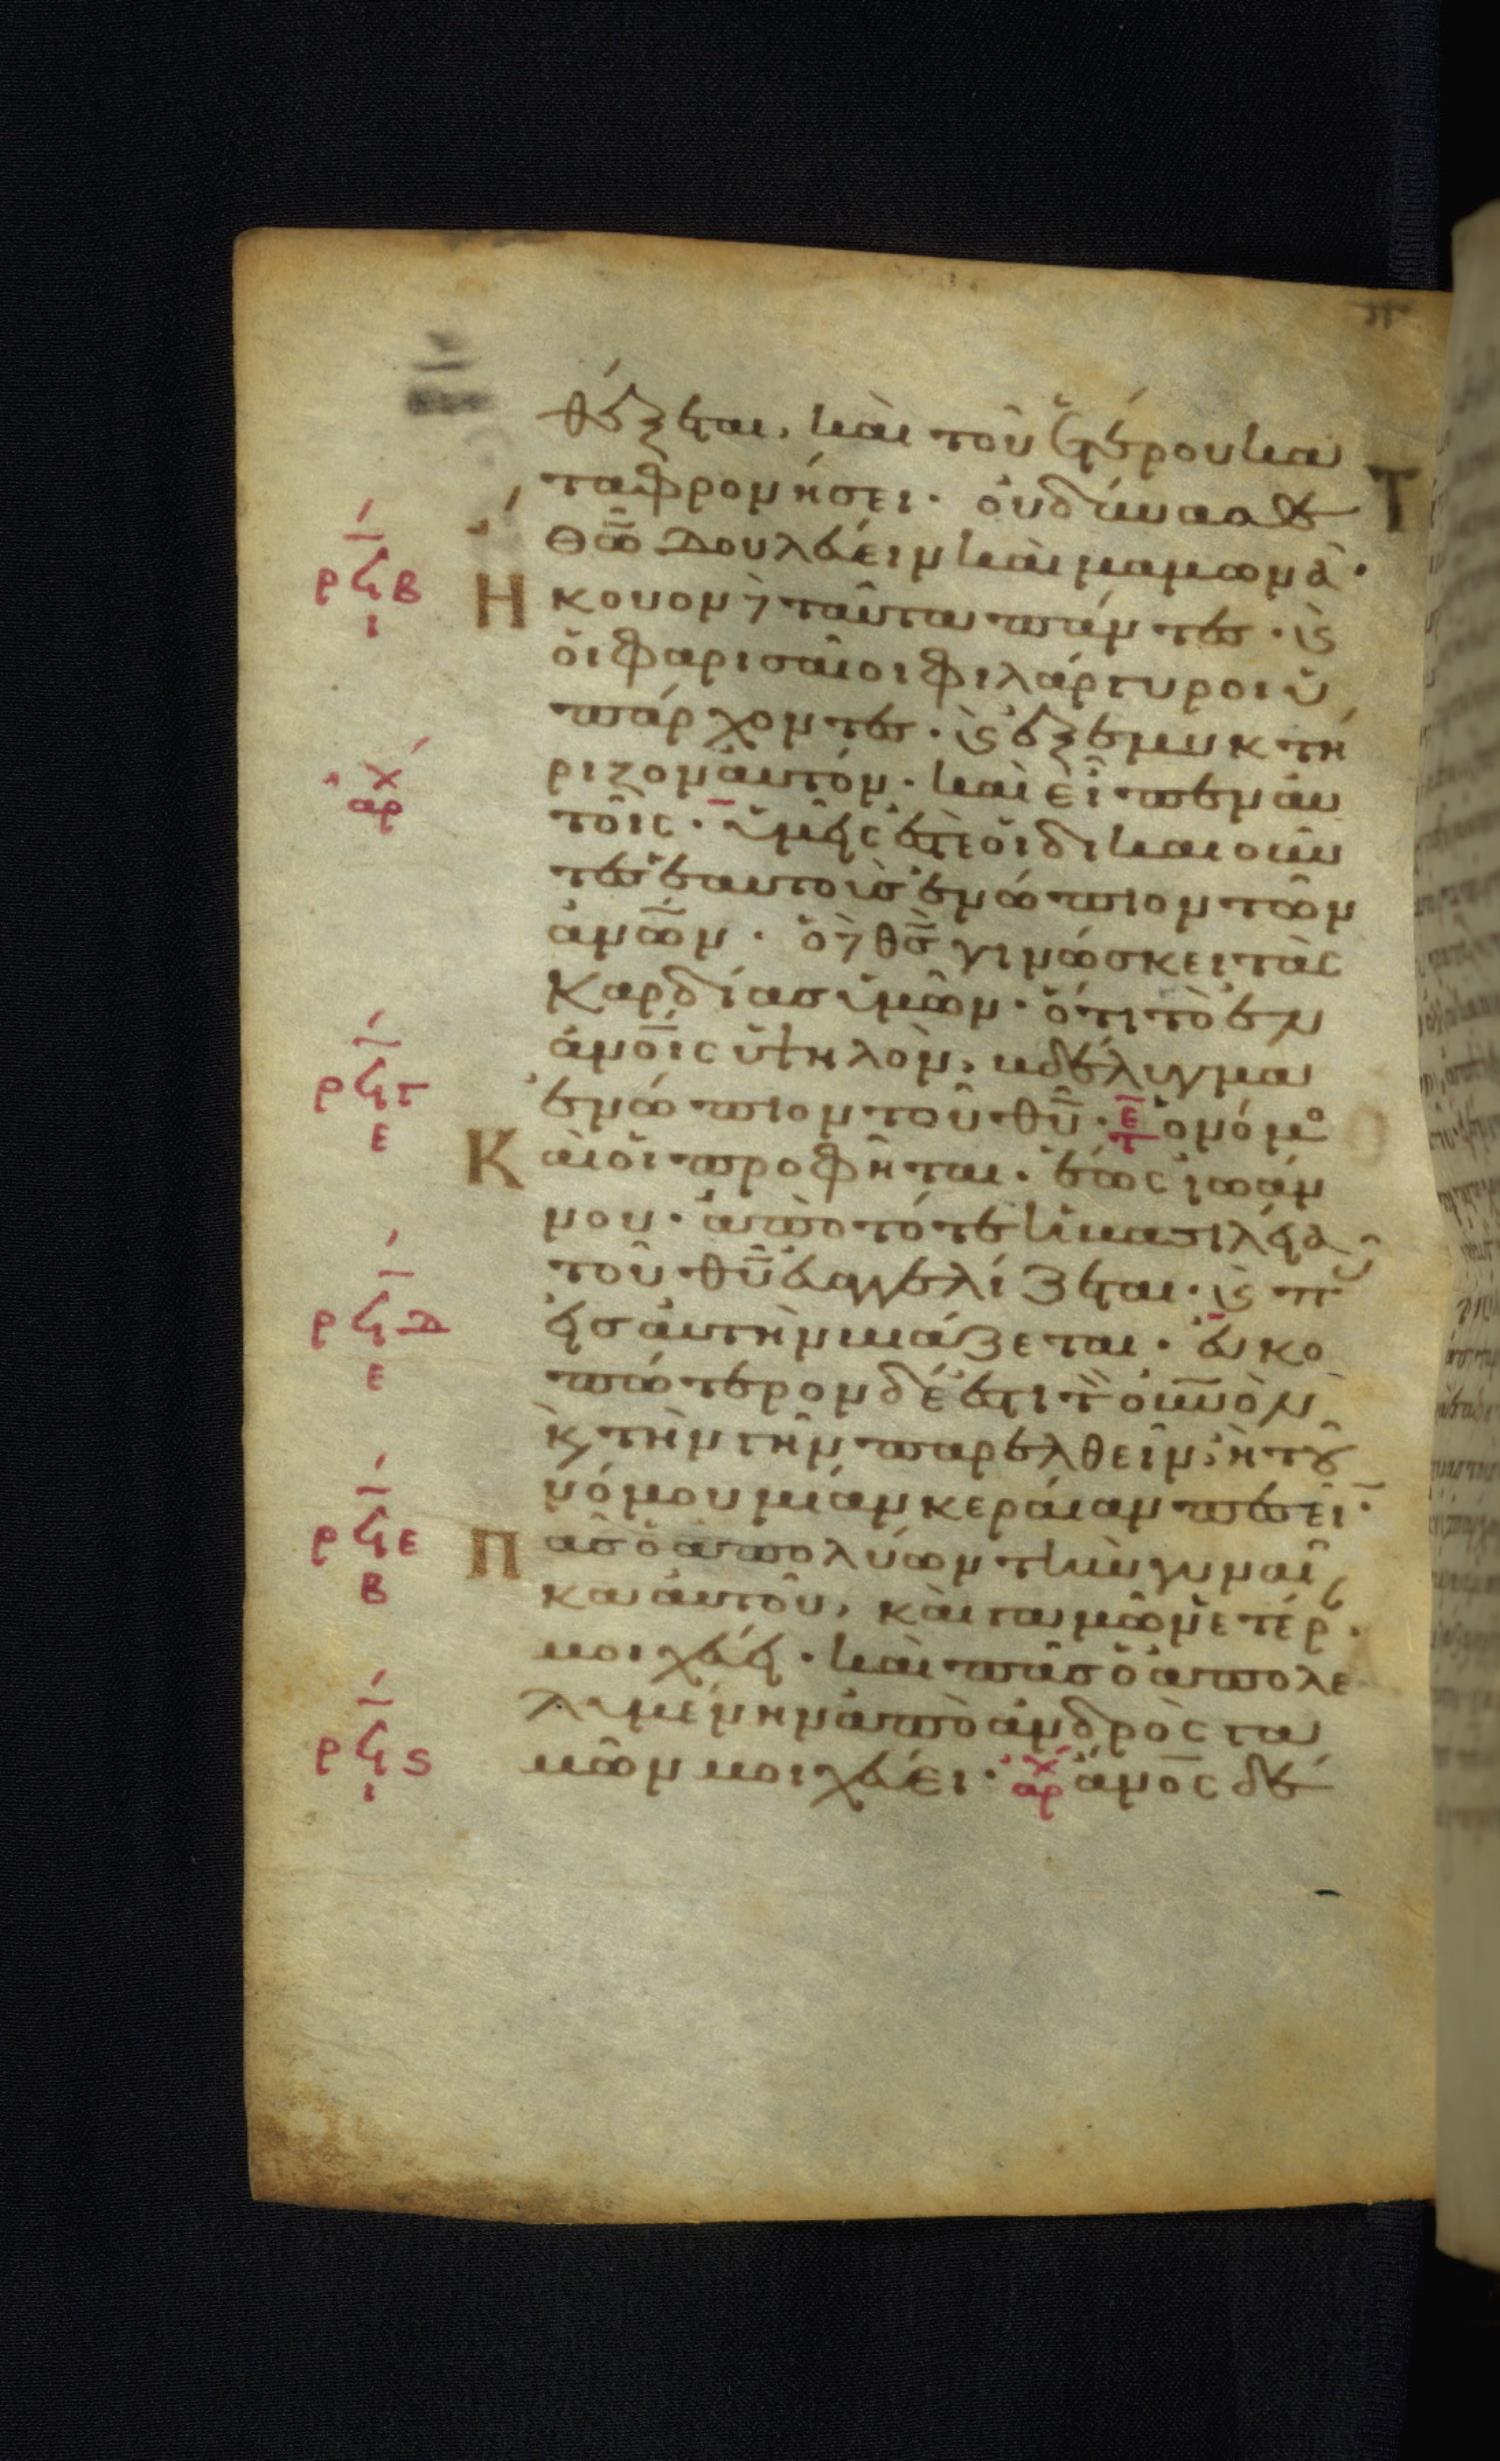 θέξεται, καὶ τοῦ ἑτέρου κα
ταφρονήσει· οὐ δύνασθε
θ̅ω̅ δουλεύειν καὶ μαμωνᾶ·
ρϟβ
ι
Ἤκουον δὲ ταῦτα πάντες· ϗ
οἱ φαρισαῖοι φιλάργυροι ὑ
πάρχοντες· ϗ ἐξεμυκτή
ριζον αὐτόν· καὶ εἶπεν αὐ
αρχ
τοῖς· ὑμεῖς ἐστὲ οἱ δικαιοῦν
τες ἑαυτοὺς ἐνώπιον τῶν
ἀν̅ω̅ν· ὁ δὲ θ̅σ̅ γινώσκει τὰς
καρδίας ὑμῶν· ὅτι τὸ ἐν
ἀν̅ο̅ις ὑψηλὸν, βδέλυγμα
ρϟγ
ε
ἐνώπιον τοῦ θ̅υ̅· ὁ νόμο
Καὶ οἱ προφῆται· ἕως ἰωάν
νου· ἀπὸ τότε ἡ βασιλεία
τοῦ θ̅υ̅ εὐαγγελίζεται· ϗ π
ρϟδ
ε
εἰς αὐτὴν βιάζεται· εὐκο
πώτερον δέ ἐστι τὸν ου̅νὸν
ϗ τὴν γῆν παρελθεῖν, ἢ τοῦ
νόμου μίαν κεραίαν πεσεῖ
ρϟε
β
Πᾶς ὁ ἀπολύων τὴν γυναῖ
κα αὐτοῦ, καὶ γαμῶν ἑτέρ
μοιχεύει· καὶ πᾶς ὁ ἀπολε
λυμένην ἀπὸ ἀνδρὸς γα
ρϟϛ
ι
μῶν μοιχεύει· αρχ ἄν̅ο̅ς δέ